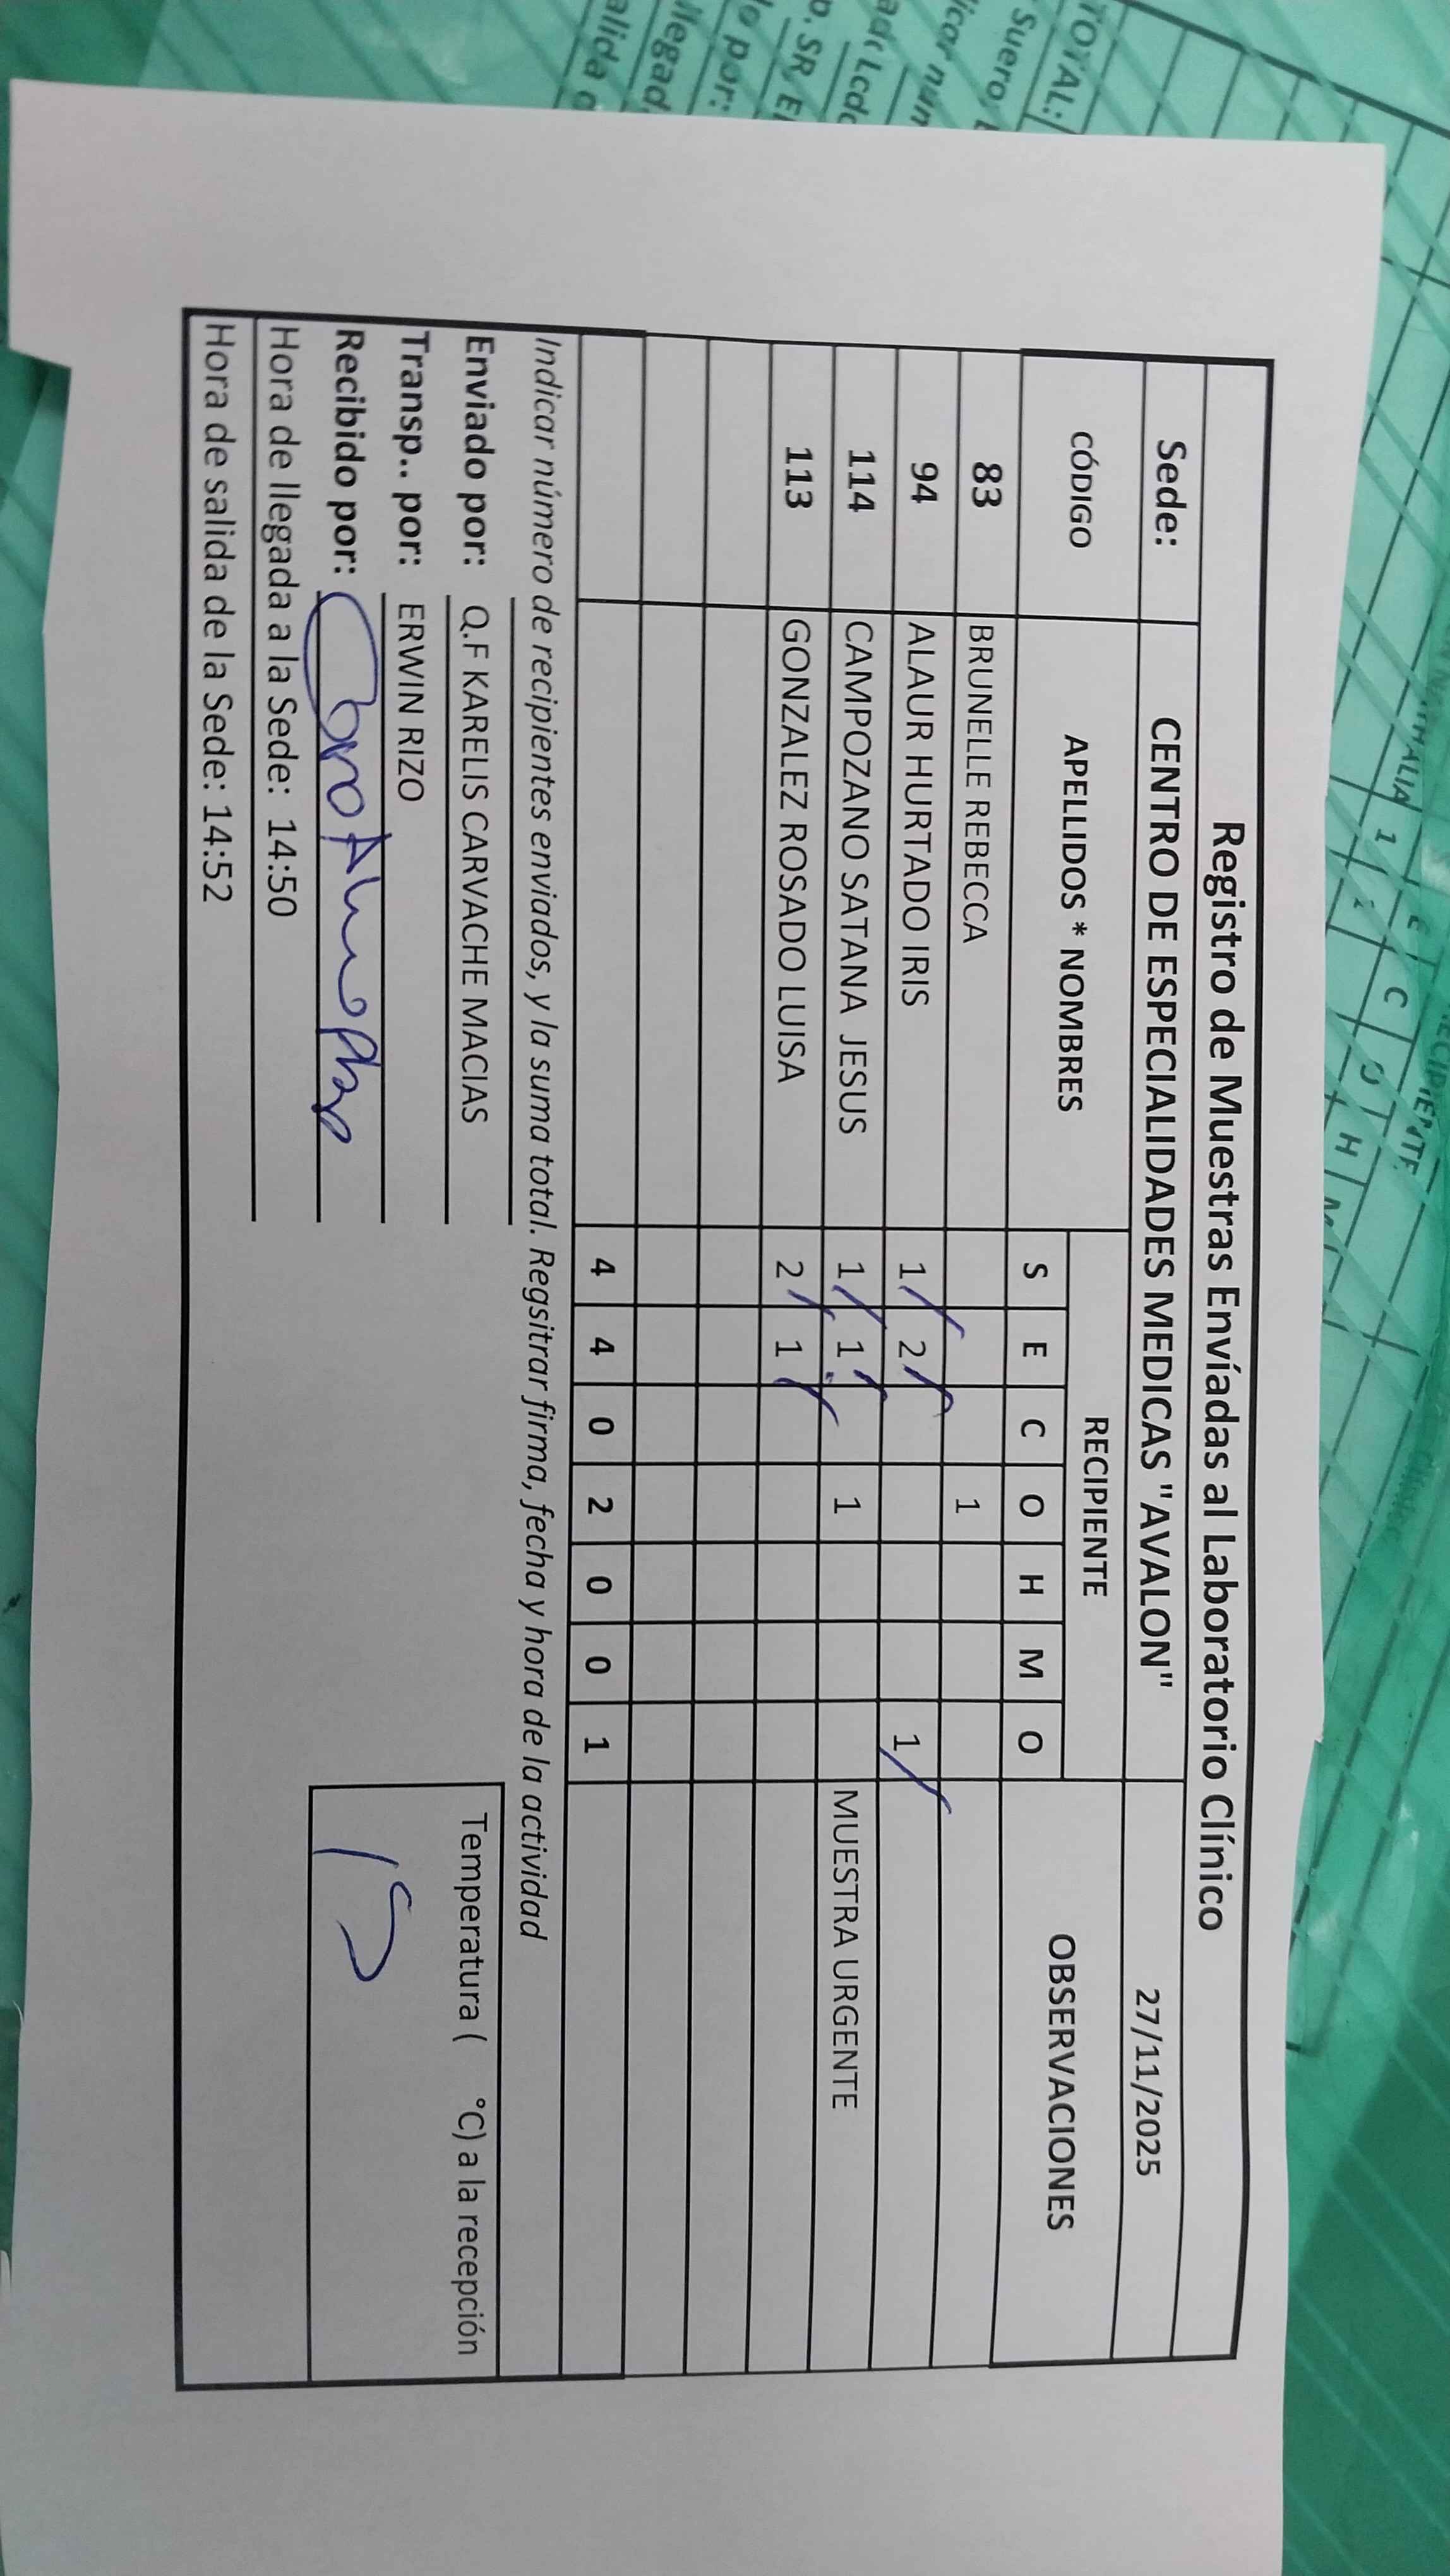 Registro de Muestras Envíadas al Laboratorio Clínico
Sede: CENTRO DE ESPECIALIDADES MEDICAS "AVALON" 27/11/2025
CÓDIGO APELLIDOS * NOMBRES RECIPIENTE OBSERVACIONES
S E C O H M O
83 BRUNELLE REBECCA 1
94 ALAUR HURTADO IRIS 1 2 1
114 CAMPOZANO SATANA JESUS 1 1 1 MUESTRA URGENTE
113 GONZALEZ ROSADO LUISA 2 1
4 4 0 2 0 0 1
Indicar número de recipientes enviados, y la suma total. Regsitrar firma, fecha y hora de la actividad
Enviado por: Q.F KARELIS CARVACHE MACIAS
Temperatura ( °C) a la recepción
Transp.. por: ERWIN RIZO
Recibido por:
Hora de llegada a la Sede: 14:50
Hora de salida de la Sede: 14:52
TOTAL:
Suero,